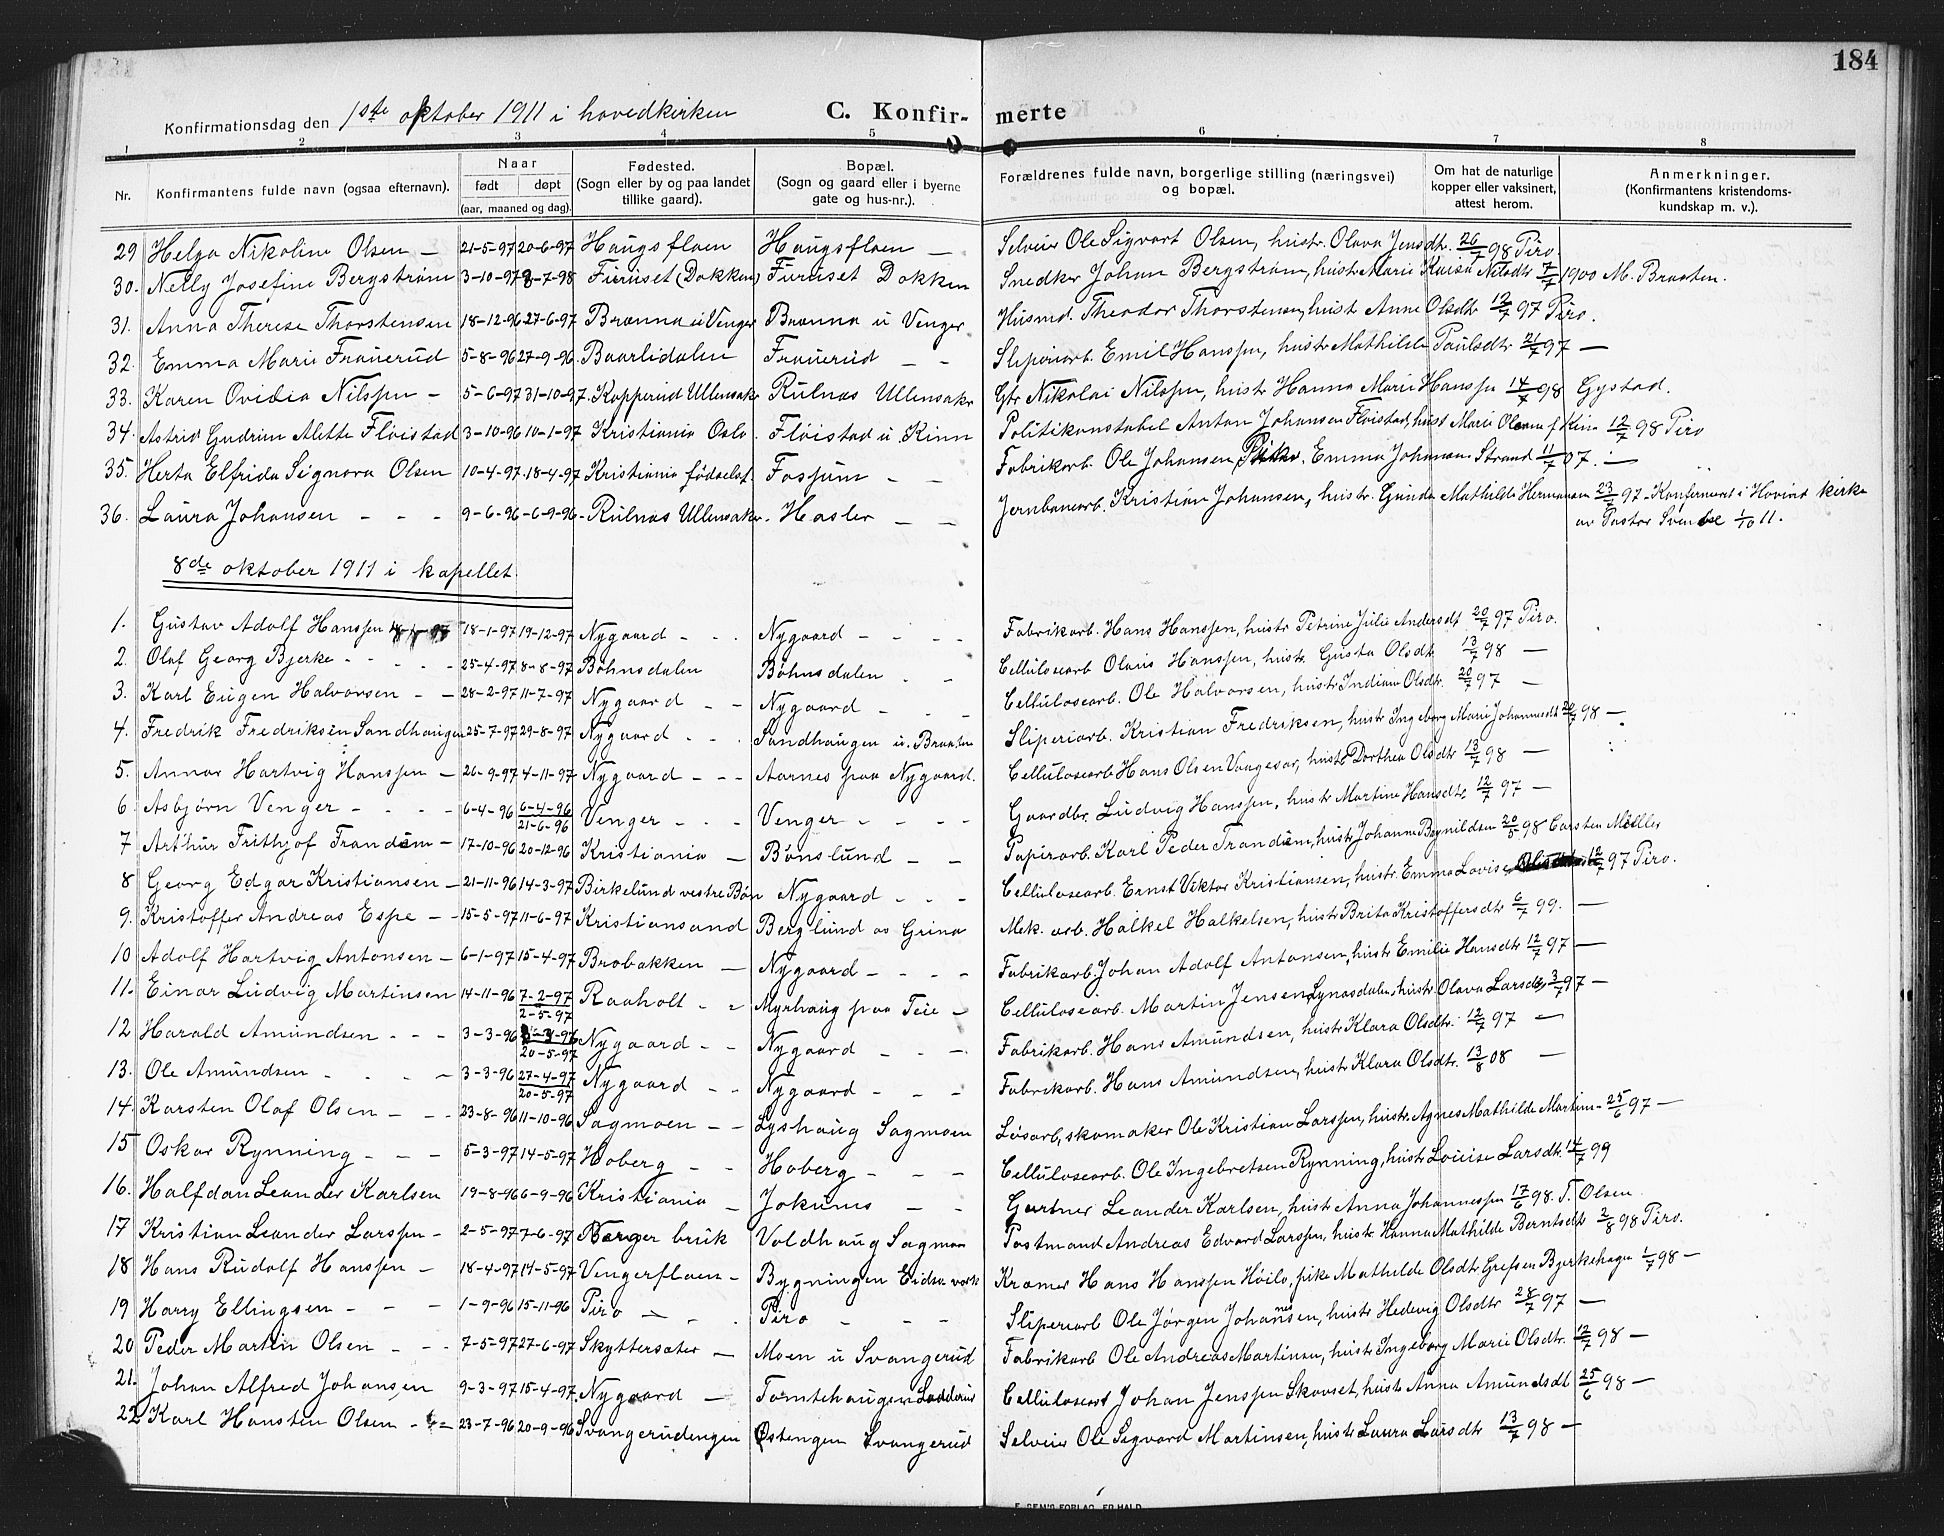 184
Konfirmationsdag den 1ste oktober 1911 i hovedkirken C. Konfir- merte
1 2 3 4 5 6 7 8
Nr. Konfirmantens fulde navn (ogsaa efternavn). Naar født døpt (aar, maaned og dag). Fødested. (Sogn eller by og paa landet tillike gaard). Bopæl. (Sogn og gaard eller i byerne gate og hus-nr.). Forældrenes fulde navn, borgerlige stilling (næringsvei) og bopæl. Om hat de naturlige kopper eller vaksinert, attest herom. Anmerkninger. (Konfirmantens kristendoms- kundskap m. v.).
29 Helga Nikoline Olsen – 21-5-97 20-6-97 Haugsfloen Haugsfloen – Selveier Ole Sigvart Olsen, hustr. Olava Jensdtr. 26/7 98 Piro.
30. Nelly Josefine Bergstrøm 3-10-97 8-7-98 Furuset (Dokken) Furuset Dokken Snedker Johan Bergstrøm, hustr Marie Kaisa Nilsdtr 7/7 1900 M. Braaten.
31. Anna Therese Thorstensen 18-12-96 27-6-97 Brænna u Venger Brænna u Venger Husmd. Theodor Thorstensen, hustr Anne Olsdtr 12/7 97 Piro.
32. Emma Marie Frauerud 5-8-96 27-9-96 Baarlidalen Frauerud – – Sliperiarb. Emil Hanssen, hustr Mathilde Paulsdtr 21/7 97 –
33. Karen Ovidia Nilssen – 5-6-97 31-10-97 Kopperud Ullensaker Rulnas Ullensaker Gbr Nikolai Nilssen, hustr Hanna Marie Hanssen 14/7 98 Gystad.
34. Astrid Gudrun Alette Fløistad 3-10-96 10-1-97 Kristiania Oslo Fløistad u Kinn Politikonstabel Anton Johansen Fløistad, hust Marie Olsen f Kinn 12/7 98 Piro
35. Herta Elfrida Signora Olsen 10-4-97 18-4-97 Kristiania fødselsst. Fossum – – Fabrikarb. Ole Johansen, Pike. Emma Johansen Strand 11/7 07. –
36. Laura Johansen – – – 9-6-96 6-9-96 Rulnas Ullensaker Hasler – – Jernbanearb. Kristian Johansen, hustr. Gunda Mathilde Hermansen 23/7 97 Konfirmert i Hovind kirke
av Pastor Svendse 1/10 11.
8de oktober 1911 i kapellet
1. Gustav Adolf Hanssen 18-1-97 19-12-97 Nygaard – – Nygaard – – – Fabrikarb. Hans Hanssen, hustr Petrine Julie Andersdt 20/7 97 Piro.
2. Olaf Georg Bjerke – – – – 25-4-97 8-8-97 Bøhnsdalen Bøhnsdalen – – Cellulosearb Olaus Hanssen, hustr. Gusta Olsdt 13/7 98 –
3. Karl Eugen Halvorsen – – 28-2-97 11-7-97 Nygaard – – Nygaard – – – Cellulosearb. Ole Halvorsen, hustr Indiane Olsdtr. 20/7 97 –
4. Fredrik Fredriksen Sandhaugen 25-7-97 29-8-97 Nygaard – – Sandhaugen u. Braaten Sliperiarb. Kristian Fredriksen, hustr Ingeborg Marie Johannesdt 20/7 98 –
5. Annar Hartvig Hanssen – 26-9-97 4-11-97 Nygaard – – – Aarnes paa Nygaard. Cellulosearb Hans Olsen Vaagesar, hustr Dorthea Olsdtr 13/7 98 –
6 Asbjørn Venger – – – – 6-4-96 6-4-96 21-6-96 Venger – – – Venger – – – – Gaardbr. Ludvig Hanssen, hustr Martine Hansdtr 12/7 97 –
7 Arthur Frithjof Trandem – 17-10-96 20-12-96 Kristiania – Bønslund – – Papirarb. Karl Peder Trandem, hustr Johanne Bøynildsen 20/5 98 Carsten Møller
8 Georg Edgar Kristiansen – 21-11-96 14-3-97 Birkelund vestre Bøn Nygaard – – – Cellulosearb. Ernst Viktor Kristiansen, hustr. Emma Lovise 12/7 97 Piro.
9. Kristoffer Andreas Espe – – 15-5-97 11-6-97 Kristiansand Berglund as Grina Mek. arb. Halkel Halkelsen, hustr Brita Kristoffersdtr 6/7 99. –
10 Adolf Hartvig Antonsen – 6-1-97 15-4-97 Brobakken – Nygaard – – – Fabrikarb. Johan Adolf Antonsen, hustr Emilie Hansdtr 12/7 97 –
11. Einar Ludvig Martinsen 14-11-96 7-2-97 2-5-97 Raaholt – – Myrhaug paa Teie – Cellulosearb. Martin Jensen Lynasdalen, hustr Olava Larsdtr 3/7 97 –
12 Harald Amundsen – – – 3-3-96 20-5-97 Nygaard – – Nygaard – – – Fabrikarb. Hans Amundsen, hustr Klara Olsdtr. 12/7 97 –
13. Ole Amundsen – – – – 3-3-96 27-4-97 20-5-97 Nygaard – – Nygaard – – – Fabrikarb. Hans Amundsen, hustr Klara Olsdtr. 13/8 08 –
14 Karsten Olaf Olsen – – – 23-8-96 11-10-96 Sagmoen – – Lyshaug Sagmoen Løsarb, skomaker Ole Kristian Larssen, hustr. Agnes Mathilde Martins- 25/6 97 –
15 Oskar Rynning – – – 5-3-97 14-5-97 Hoberg – – Hoberg – – – Cellulosearb. Ole Ingebretsen Rynning, hustr Louise Larsdt. 14/7 99
16. Halfdan Leander Karlsen 19-8-96 6-9-96 Kristiania – Jokums – – Gartner Leander Karlsen, hustr Anna Johannessen 17/6 98. T. Olsen.
17 Kristian Leander Larssen – 2-5-97 7-6-97 Borger bruk Voldhaug Sagmoen Postmand Andreas Edvard Larssen, hustr. Hanna Mathilde Berntsdt 2/8 98 Piro.
18 Hans Rudolf Hanssen – 18-4-97 14-5-97 Vengerfloen – Bygningen Eidsv. verk Kræmer Hans Hanssen Høilo, pike Mathilde Olsdtr Grefsen Bjerkehagn 1/7 98 –
19 Harry Ellingsen – – – 1-9-96 15-11-96 Piro – – Piro – – – Sliperiarb Ole Jørgen Johannessen, hustr Hedevig Olsdtr 28/7 97 –
20 Peder Martin Olsen – – – 7-5-97 27-6-97 Skyttersæter – Moen u Svangerud Fabrikarb Ole Andreas Martinsen, hustr Ingeborg Marie Olsdtr. 12/7 98 –
21. Johan Alfred Johansen 9-3-97 15-4-97 Nygaard – Tomtehaugen Ladderud Cellulosearb Johan Jenssen Skovset, hustr Anna Amundsdt 25/6 98 –
22 Karl Hansten Olsen – – 23-7-96 20-9-96 Svangerudengen Østengen Svangerud Selveier Ole Sigvard Martinsen, hustr Laura Larsdtr 13/7 98 –